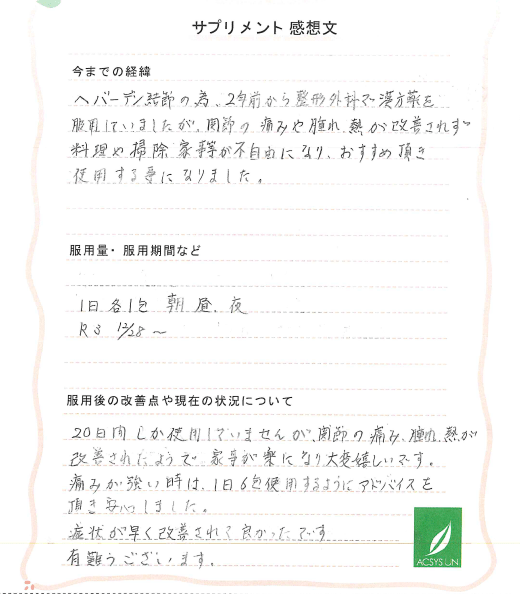 サプリメント 感想文
今までの経緯
ヘバーデン結節の為、2年前から整形外科で漢方薬を
服用していましたが、関節の痛みや腫れ、熱が改善されず
料理や掃除、家事等が不自由になり、おすすめ頂き
使用する事になりました。
服用量・服用期間など
1日各1包 朝、昼、夜
R3 12/28〜
服用後の改善点や現在の状況について
20日間しか使用していませんが、関節の痛み、腫れ、熱が
改善されたようで家事が楽になり大変嬉しいです。
痛みが強い時は、1日6包使用するようにアドバイスを
頂き安心しました。
症状が早く改善されて良かったです
有難うございます。
ACSYS UN